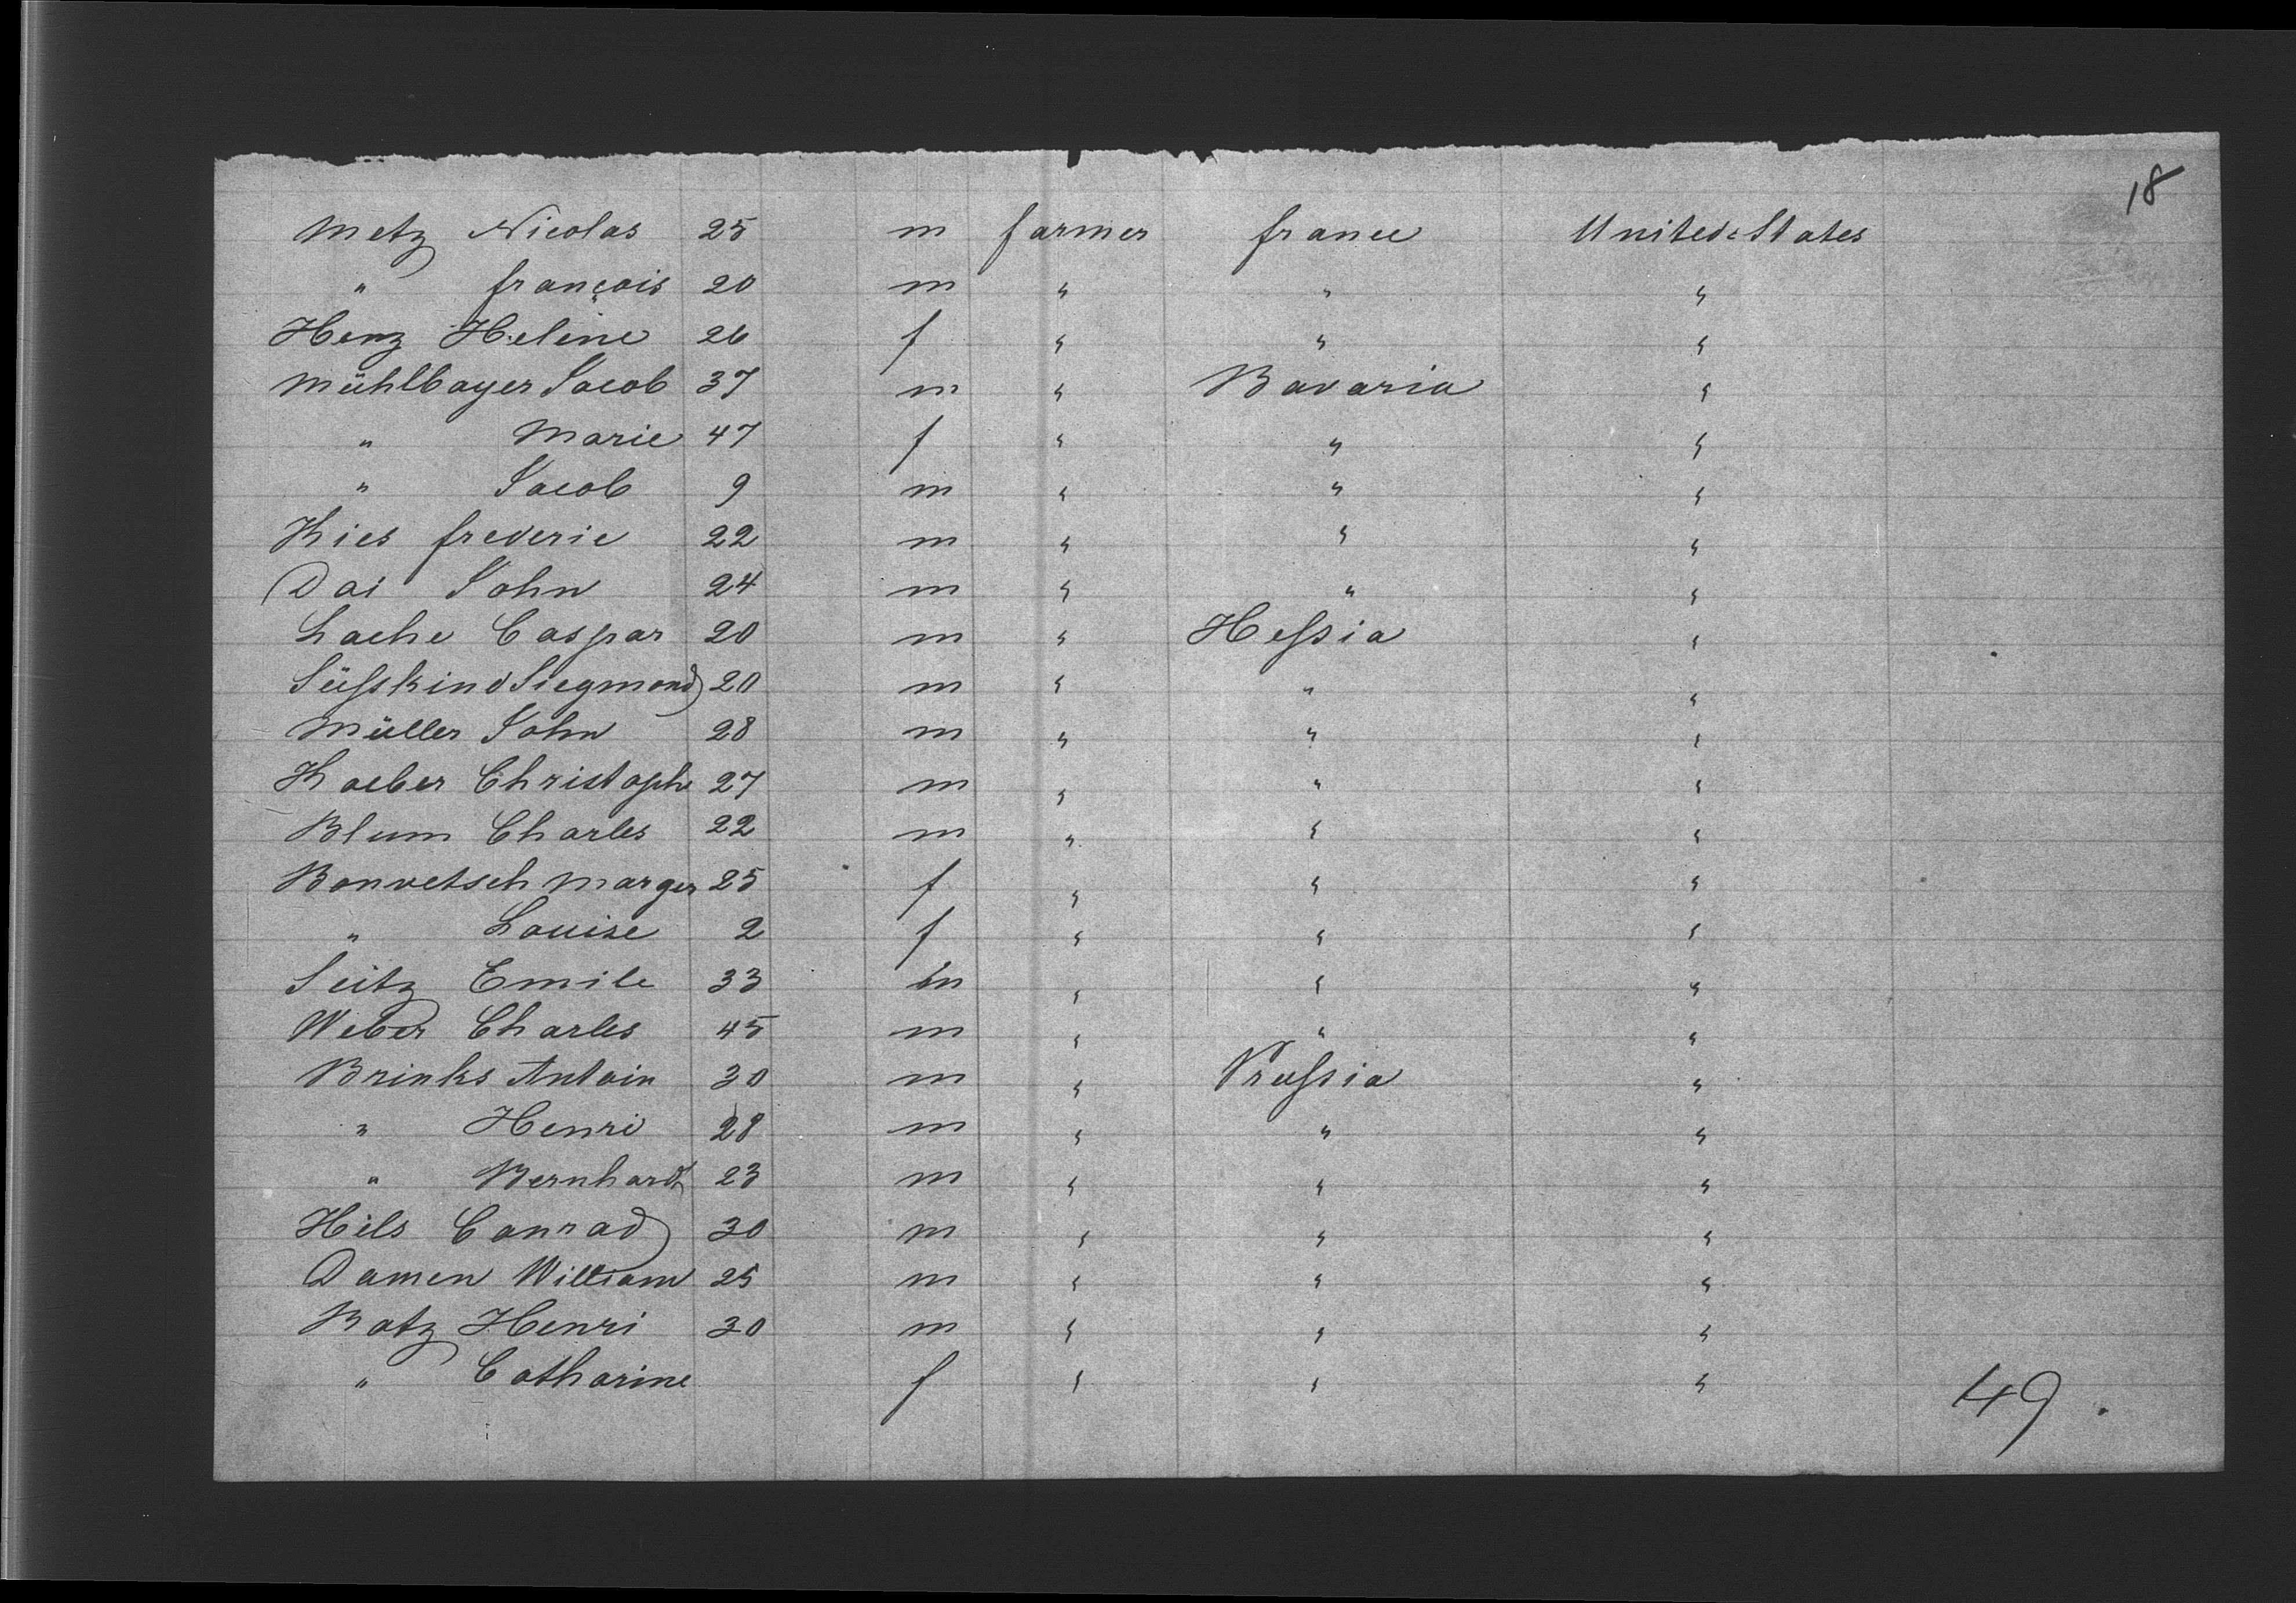 18
Metz Nicolas 25 m farmer france United-States
" françois 20 m " " "
Henz Heline 26 f " " "
Mühlbayer Jacob 37 m " Bavaria "
" Marie 47 f " " "
" Jacob 9 m " " "
Kies frederic 22 m " " "
Dai John 24 m " " "
Lache Caspar 20 m " Hessia "
Süsskind Siegmond 20 m " " "
Müller John 28 m " " "
Kaeber Christoph 27 m " " "
Blum Charles 22 m " " "
Bonvetsch Marger 25 f " " "
" Louise 2 f " " "
Seitz Emile 33 m " " "
Weber Charles 45 m " " "
Brinks Antoin 30 m " Prussia "
" Henri 28 m " " "
" Bernhard 23 m " " "
Hils Conrad 30 m " " "
Damen William 25 m " " "
Batz Henri 30 m " " "
" Catharine f " " "
49.